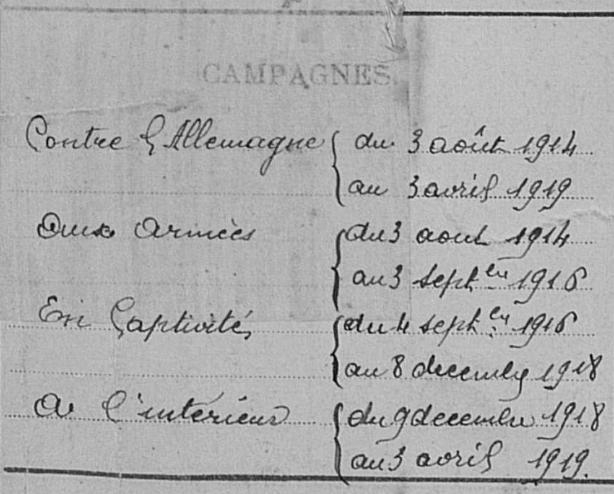 CAMPAGNES
Contre l'Allemagne { du 3 août 1914
au 3 avril 1919
Aux Armées { du 3 aout 1914
au 3 septbre 1916
En Captivité, { du 4 septbre 1916
au 8 decembre 1918
A l'intérieur { du 9 decembre 1918
au 3 avril 1919.